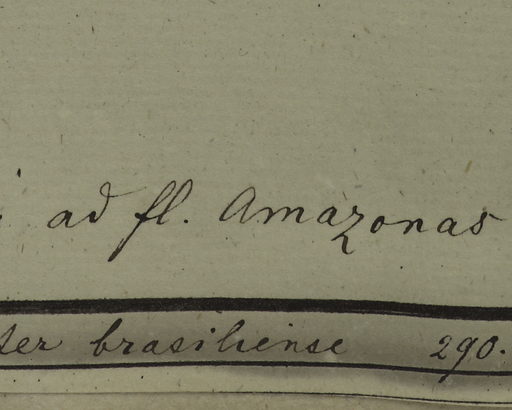 ad fl. Amazonas
ter brasiliense 290.